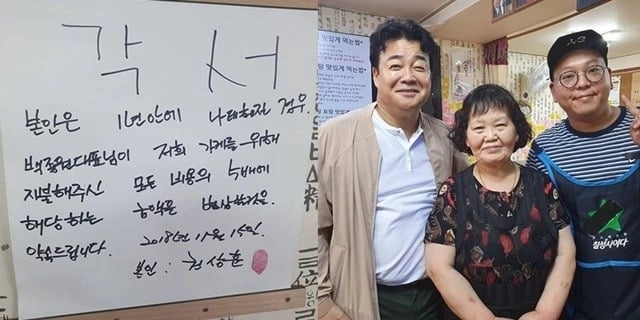 각 서
본인은 1년안에 나태해질 경우
백종원대표님이 저희 가게를 위해
지불해주신 모든 비용의 5배에
해당하는 금액을 변상할것을
약속드립니다.
2018년 11월 15일.
본인 : 권상훈
맛있게 먹는법*
맛있게 먹는법*
칠성사이다